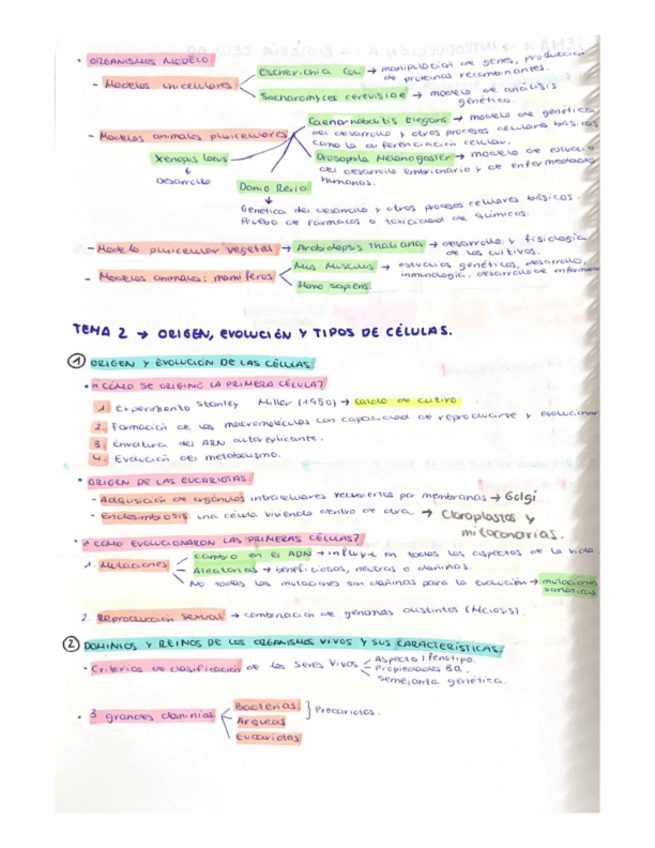 • ORGANISMOS MODELO
- Modelos unicelulares
Escherichia Coli → manipulación de genes, producción
de proteínas recombinantes.
Sacharomyces cerevisiae → modelo de análisis
genético.
- Modelos animales pluricelulares
Caenorhabditis Elegans → modelo de genética
del desarrollo y otros procesos celulares básicos
como la diferenciación celular.
Xenopus laevis
↓
Desarrollo
Drosophila Melanogaster → modelo de estudio
del desarrollo embrionario y de enfermedades
humanas.
Danio Rerio
↓
Genética del desarrollo y otros procesos celulares básicos.
Prueba de fármacos o toxicidad de químicos.
- Modelo pluricelular vegetal → Arabidopsis Thaliana → desarrollo y fisiología
de los cultivos.
- Modelos animales: mamíferos
Mus Musculus → estudios genéticos, desarrollo,
inmunología, desarrollo de
Homo sapiens.
TEMA 2 → ORIGEN, EVOLUCIÓN Y TIPOS DE CÉLULAS.
① ORIGEN Y EVOLUCIÓN DE LAS CÉLULAS.
• ¿CÓMO SE ORIGINÓ LA PRIMERA CÉLULA?
1. Experimento Stanley Miller (1950) → caldo de cultivo
2. Formación de las macromoléculas con capacidad de reproducirse y evolucionar
3. Envoltura del ARN autoreplicante.
4. Evolución del metabolismo.
• ORIGEN DE LAS EUCARIOTAS.
- Adquisición de orgánulos intracelulares recubiertos por membranas → Golgi
- Endosimbiosis: una célula viviendo dentro de otra → Cloroplastos y
mitocondrias.
• ¿CÓMO EVOLUCIONARON LAS PRIMERAS CÉLULAS?
1. Mutaciones
Cambio en el ADN → influye en todos los aspectos de la vida
Aleatorias → beneficiosas, neutras o dañinas.
No todas las mutaciones son dañinas para la evolución → mutaciones
somáticas
2. Reproducción sexual → combinación de genomas distintos (Meiosis).
② DOMINIOS Y REINOS DE LOS ORGANISMOS VIVOS Y SUS CARACTERÍSTICAS.
• Criterios de clasificación de los Seres Vivos
Aspecto / Fenotipo.
Propiedades BQ.
Semejanza genética.
• 3 grandes dominios
Bacterias
Arqueas
] Procariotas.
Eucariotas